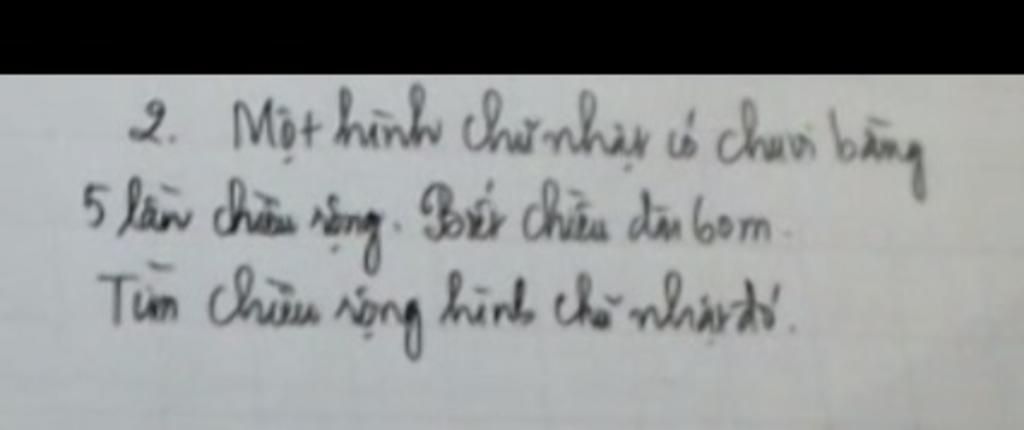 2. Một hình chữ nhật có chu vi bằng
5 lần chiều rộng. Biết chiều dài 60m.
Tìm chiều rộng hình chữ nhật đó.